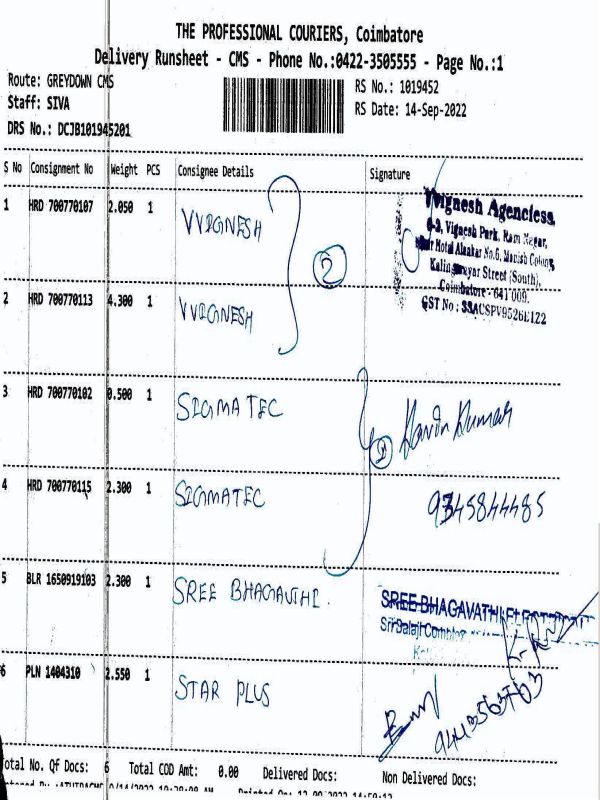 THE PROFESSIONAL COURIERS, Coimbatore
Delivery Runsheet - CMS - Phone No.:0422-3505555 - Page No.:1
Route: GREYDOWN CMS
RS No.: 1019452
Staff: SIVA
RS Date: 14-Sep-2022
DRS No.: DCJB101945201
S No Consignment No Weight PCS Consignee Details Signature
1 HRD 700770107 2.050 1 VVIGNESH
Vvignesh Agenciess
Vignesh Park, Ram Nagar,
Hotal Alankar No.6, Manish Colony,
Street (South),
Coimbatore - 641 009.
GST No :
2
2 HRD 700770113 4.300 1 VVIGNESH
3 HRD 700770102 0.500 1 SIGMATEC
Kumar
4 HRD 700770115 2.300 1 SIGMATEC
9345844485
5 BLR 1650919103 2.300 1 SREE BHAGAVTHI.
SREE BHAGAVATHI
Sri Balaji
6 PLN 1404310 2.550 1 STAR PLUS
Total No. Of Docs: 6 Total COD Amt: 0.00 Delivered Docs: Non Delivered Docs: